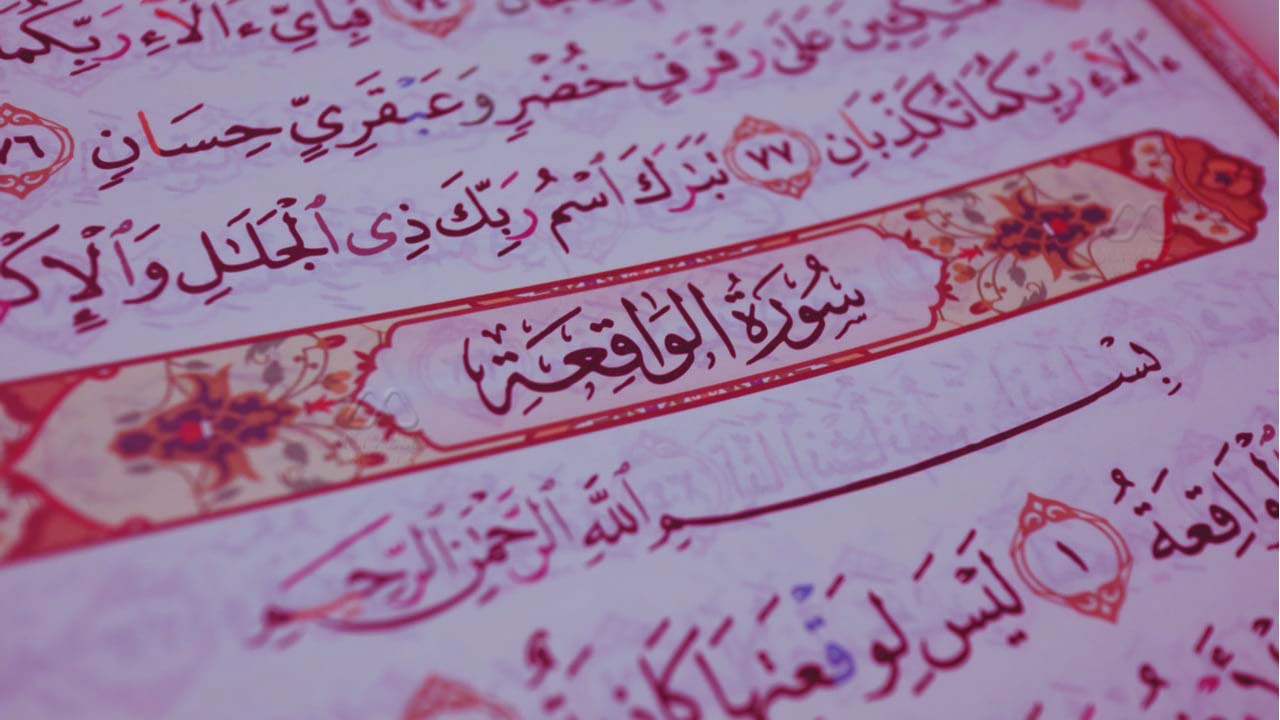 فَبِأَيِّ ءَالَآءِ رَبِّكُمَا
مُتَّكِـِٔينَ عَلَىٰ رَفْرَفٍ خُضْرٍ وَعَبْقَرِيٍّ حِسَانٍ ٧٦
ءَالَآءِ رَبِّكُمَا تُكَذِّبَانِ ٧٧ تَبَٰرَكَ ٱسْمُ رَبِّكَ ذِى ٱلْجَلَٰلِ وَٱلْإِكْ
سُورَةُ الوَاقِعَةِ
بِسْمِ ٱللَّهِ ٱلرَّحْمَٰنِ ٱلرَّحِيمِ
لْوَاقِعَةُ ١ لَيْسَ لِوَقْعَتِهَا كَاذِبَةٌ